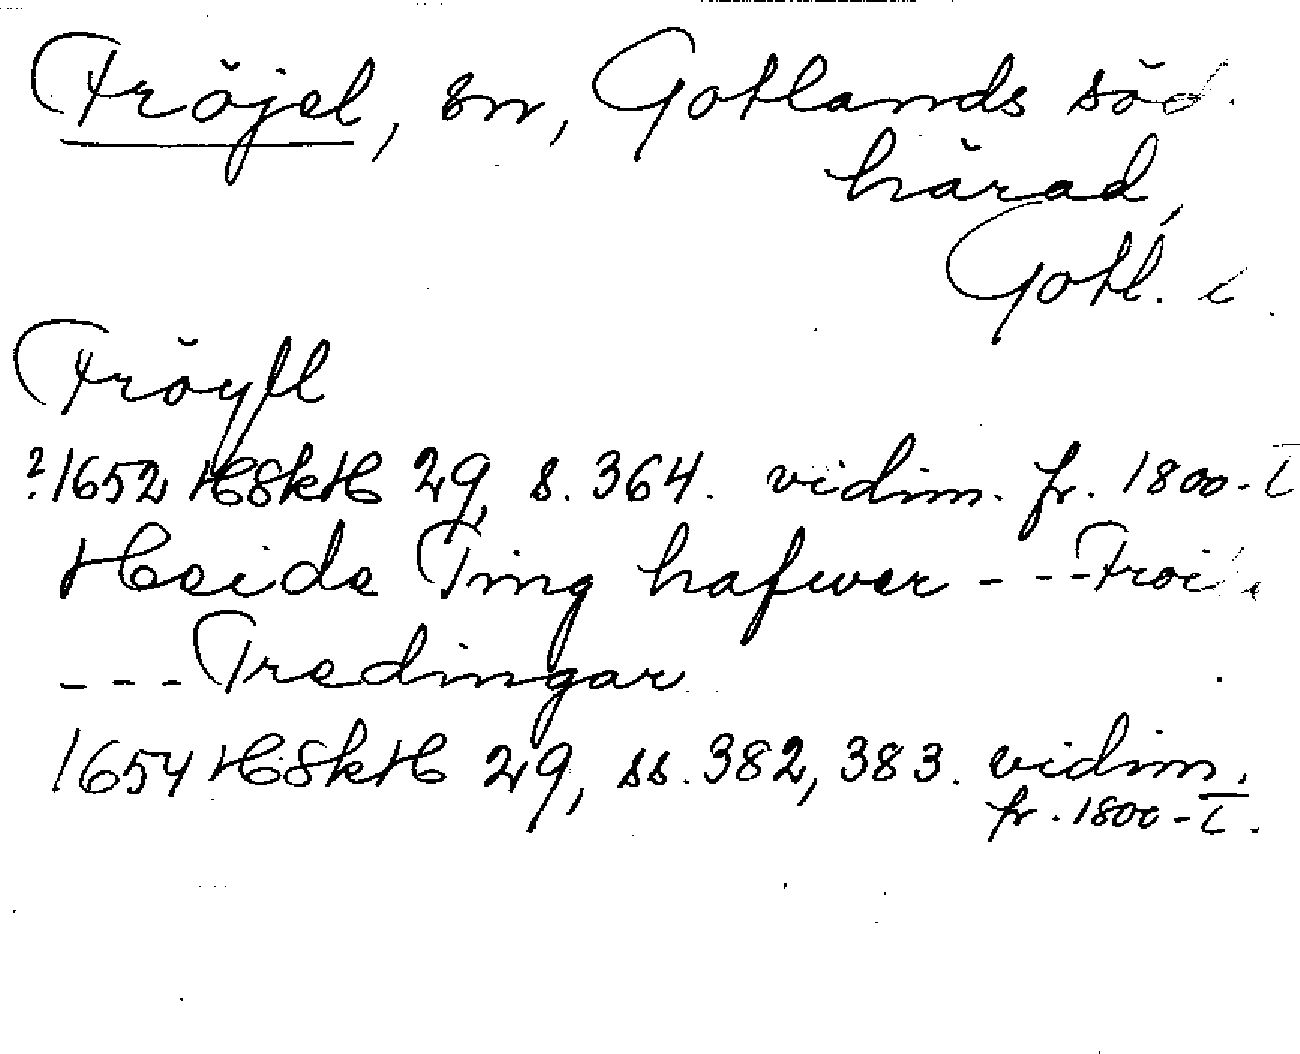 Fröjel, sn, Gotlands söd.
härad,
Gotl.
Fröyel
?1652 HSkH 29, s. 364. vidim. fr. 1800-t
Heide Ting hafwer ---
--- Tredingar
1654 HSkH 29, ss. 382, 383. vidim.
fr. 1800-t.